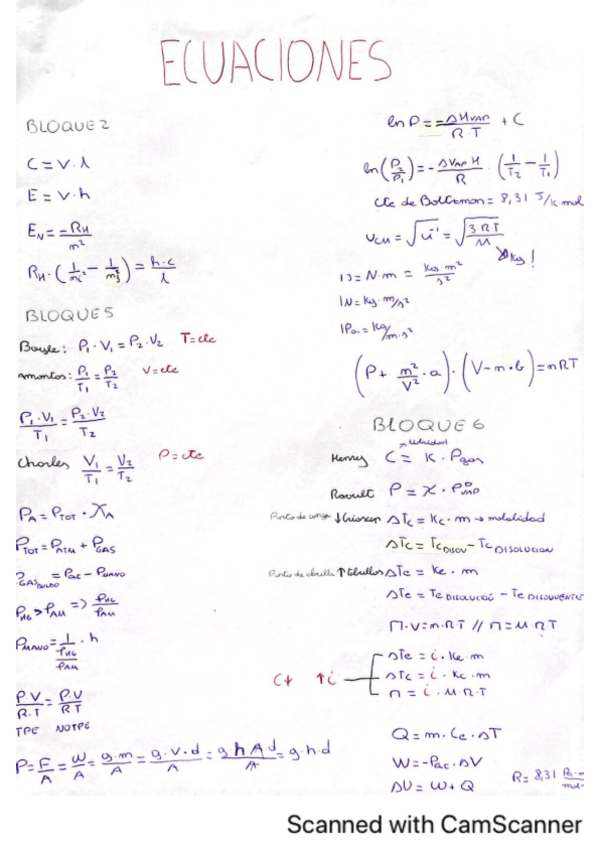 ECUACIONES
BLOQUE 2
C = V · λ
E = V · h
E_N = -R_H / m²
R_H · (1/m_i² - 1/m_j²) = h·c / λ
BLOQUE 5
Boyle: P₁ · V₁ = P₂ · V₂ T=cte
Amontos: P₁/T₁ = P₂/T₂ V=cte
P₁·V₁/T₁ = P₂·V₂/T₂
Charles V₁/T₁ = V₂/T₂ P=cte
P_A = P_TOT · X_A
P_TOT = P_ATM + P_GAS
P_Hg > P_AM => P_Hg/P_AM
P V/R.T = P.V/R T
TPE NOTPE
P = F/A = W/A = g·m/A = g·V·d/A = g h A d/A = g·h·d
ln P = -ΔH_VAP/R·T + C
ln(P₂/P₁) = -Δ_VAP H/R · (1/T₂ - 1/T₁)
cte de Boltzman = 8,31 J/K mol
V_CM = √ū² = √3 R T/M
Kg!
1 J = N·m = Kg·m²/s²
1N = Kg·m/s²
1Pa = Kg/m·s²
(P + n²/V² · a) · (V - n·b) = nRT
BLOQUE 6
Henry C = K · P_gas
Raoult P = X · P⁰_VAP
ΔTc = Kc · m → molalidad
ΔTc = Tc_DISOLV - Tc_DISOLUCION
ΔTe = Ke · m
ΔTe = Te DISOLUCIÓN - Te DISOLVENTE
Π·V = n·R·T // Π = M·R·T
C↓ ↑i
ΔTe = i · Ke · m
ΔTc = i · Kc · m
Π = i · M·R·T
Q = m · Ce · ΔT
W = -Pac · ΔV
ΔU = W + Q
R = 8,31
Scanned with CamScanner